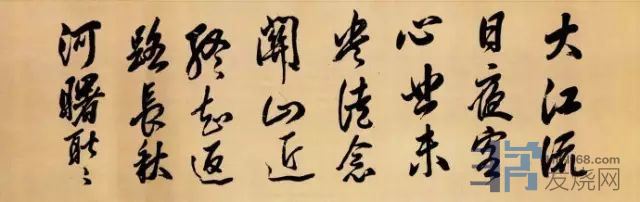 大江流
日夜客
心悲未
央徒念
關山近
終知返
路長秋
河曙耿〻
发烧网